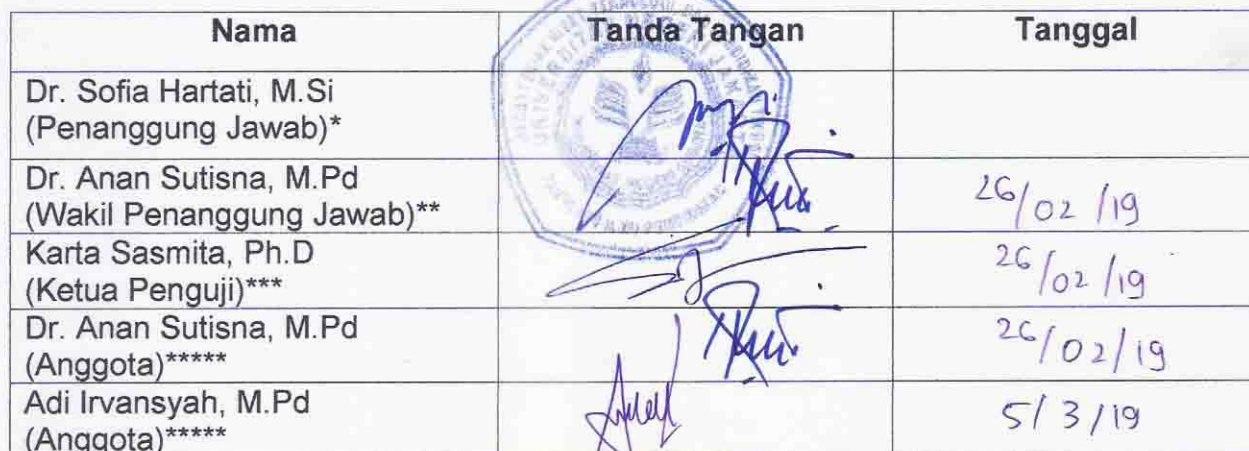 Nama Tanda Tangan Tanggal
Dr. Sofia Hartati, M.Si
(Penanggung Jawab)*
Dr. Anan Sutisna, M.Pd
(Wakil Penanggung Jawab)** 26/02/19
Karta Sasmita, Ph.D
(Ketua Penguji)*** 26/02/19
Dr. Anan Sutisna, M.Pd
(Anggota)***** 26/02/19
Adi Irvansyah, M.Pd
(Anggota)***** 5/3/19